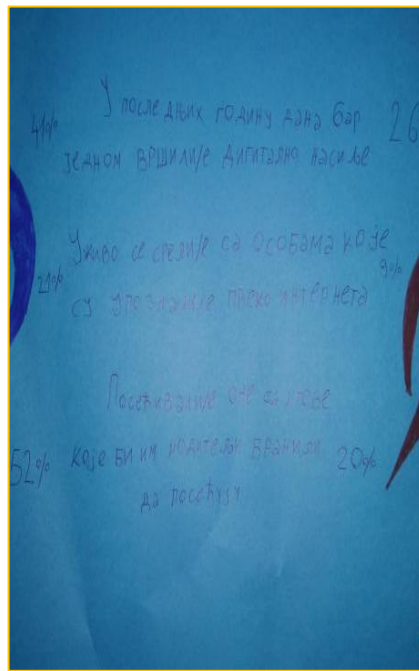 У последњих годину дана бар 26
41% једном вршили/е дигитално насиље
Уживо се срели/е са особама које
21% су упознали/е преко интернета 9%
Посећивали/е оне сајтове
52% које би им родитељи бранили 20%
да посећују